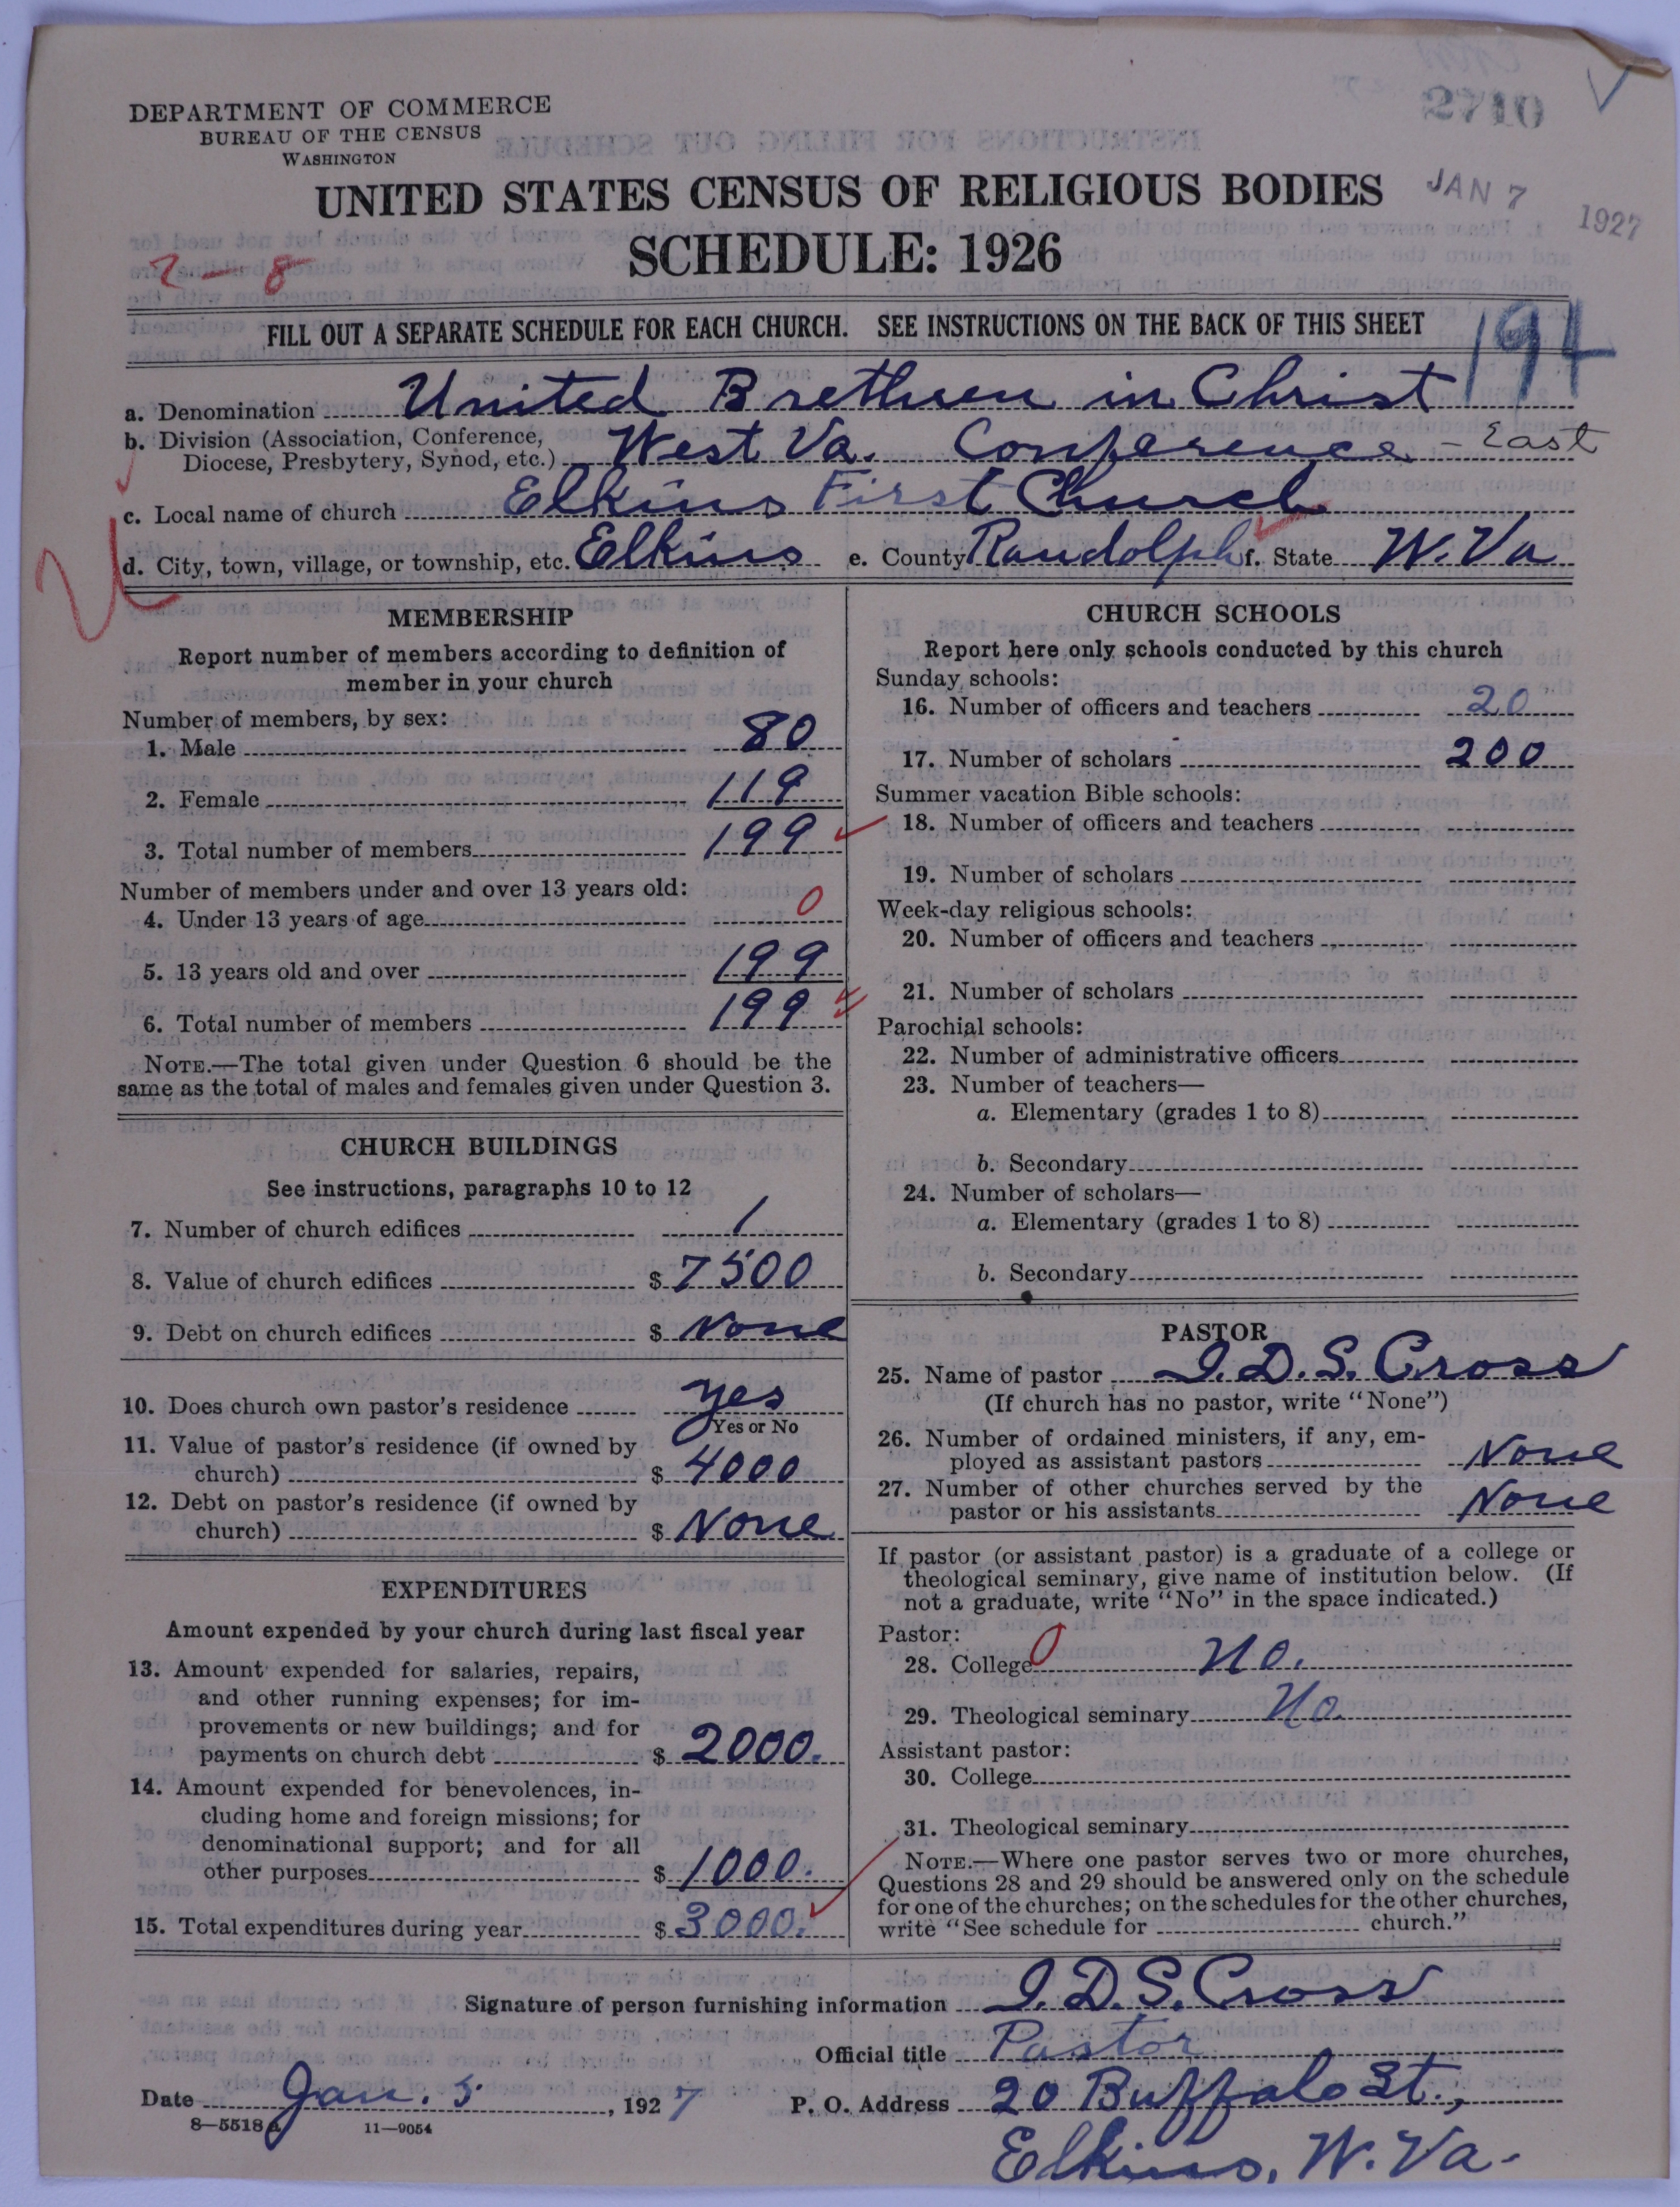 2710
DEPARTMENT OF COMMERCE
BUREAU OF THE CENSUS
WASHINGTON
UNITED STATES CENSUS OF RELIGIOUS BODIES
JAN 7 1927
SCHEDULE: 1926
2-8
FILL OUT A SEPARATE SCHEDULE FOR EACH CHURCH. SEE INSTRUCTIONS ON THE BACK OF THIS SHEET
194
a. Denomination United Brethren in Christ
b. Division (Association, Conference,
Diocese, Presbytery, Synod, etc.) West Va. Conference - East
c. Local name of church Elkins First Church
d. City, town, village, or township, etc. Elkins e. County Randolph f. State W. Va
MEMBERSHIP
Report number of members according to definition of
member in your church
Number of members, by sex:
1. Male 80
2. Female 119
3. Total number of members 199
Number of members under and over 13 years old:
4. Under 13 years of age 0
5. 13 years old and over 199
6. Total number of members 199
NOTE.—The total given under Question 6 should be the
same as the total of males and females given under Question 3.
CHURCH BUILDINGS
See instructions, paragraphs 10 to 12
7. Number of church edifices 1
8. Value of church edifices $ 7500
9. Debt on church edifices $ None
10. Does church own pastor's residence yes
Yes or No
11. Value of pastor's residence (if owned by
church) $ 4000
12. Debt on pastor's residence (if owned by
church) $ None
EXPENDITURES
Amount expended by your church during last fiscal year
13. Amount expended for salaries, repairs,
and other running expenses; for im-
provements or new buildings; and for
payments on church debt $ 2000.
14. Amount expended for benevolences, in-
cluding home and foreign missions; for
denominational support; and for all
other purposes $ 1000.
15. Total expenditures during year $ 3000.
CHURCH SCHOOLS
Report here only schools conducted by this church
Sunday schools:
16. Number of officers and teachers 20
17. Number of scholars 200
Summer vacation Bible schools:
18. Number of officers and teachers
19. Number of scholars
Week-day religious schools:
20. Number of officers and teachers
21. Number of scholars
Parochial schools:
22. Number of administrative officers
23. Number of teachers—
a. Elementary (grades 1 to 8)
b. Secondary
24. Number of scholars—
a. Elementary (grades 1 to 8)
b. Secondary
PASTOR
25. Name of pastor I.D.S. Cross
(If church has no pastor, write "None")
26. Number of ordained ministers, if any, em-
ployed as assistant pastors None
27. Number of other churches served by the
pastor or his assistants None
If pastor (or assistant pastor) is a graduate of a college or
theological seminary, give name of institution below. (If
not a graduate, write "No" in the space indicated.)
Pastor:
28. College 0 No.
29. Theological seminary No.
Assistant pastor:
30. College
31. Theological seminary
NOTE.—Where one pastor serves two or more churches,
Questions 28 and 29 should be answered only on the schedule
for one of the churches; on the schedules for the other churches,
write "See schedule for church."
Signature of person furnishing information I.D.S. Cross
Official title Pastor
Date Jan. 5, 1927 P. O. Address 20 Buffalo St.,
8—5518 A 11—9054
Elkins, W. Va.